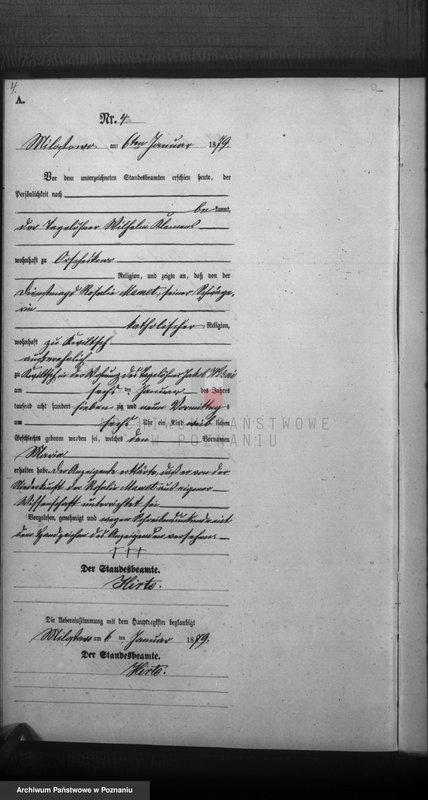 4.
A.
Nr. 4.
Milostowo am 6ten Januar 1879.
Vor dem unterzeichneten Standesbeamten erschien heute, der
Persönlichkeit nach
be kannt,
der Tagelöhner Wilhelm Klemens
wohnhaft zu
Religion, und zeigte an, daß von der
Dienstmagd Rosalie seiner Schwäge-
rin
katholischer Religion,
wohnhaft zu Kwiltsch
außerehelich
zu Kwiltsch in der Wohnung des Tagelöhner Jakob
am sechs ten Januar des Jahres
tausend acht hundert sieben zig und neun Vormittag s
um sechs Uhr ein Kind weib lichen
Geschlechts geboren worden sei, welches den Vornamen
Maria
erhalten habe. Der Anzeigende erklärte, daß er von der
Niederkunft der Rosalie aus eigener
Wissenschaft unterrichtet sei
Vorgelesen, genehmigt und wegen Schreibensunkunde mit
dem Handzeichen des Anzeigenden versehen.
+++
Der Standesbeamte.
Hirte.
Die Uebereinstimmung mit dem Hauptregister beglaubigt
Milostowo am 6 ten Januar 1879.
Der Standesbeamte.
Hirte.
ARCHIWUM PAŃSTWOWE
W POZNANIU
Archiwum Państwowe w Poznaniu